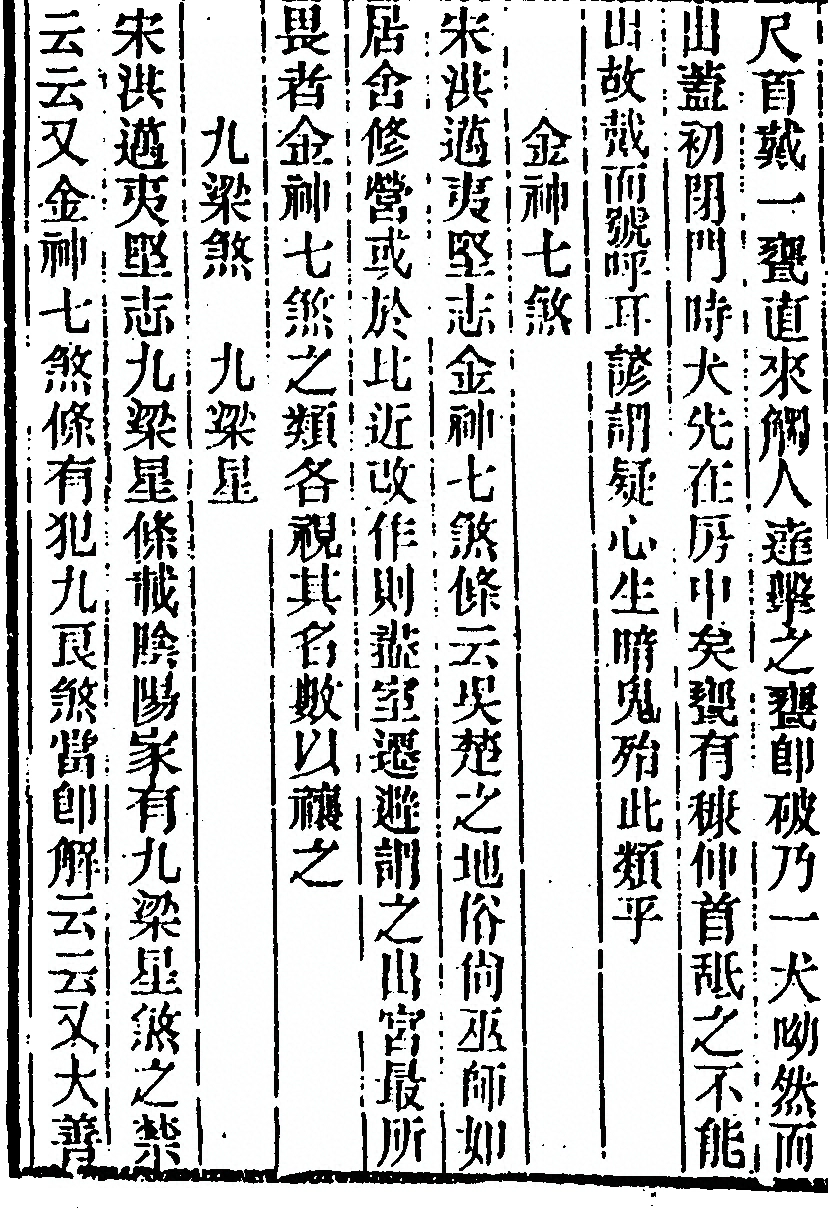 尺首戴一甕直來觸人遽擊之甕卽破乃一犬呦然而
出蓋初閉門時犬先在房中矣甕有穅伸首舐之不能
出故戴而號呼耳諺謂疑心生暗鬼殆此類乎
金神七煞
宋洪邁夷堅志金神七煞條云吳楚之地俗尙巫師如
居舍修營或於比近改作則盡室遷避謂之出宮最所
畏者金神七煞之類各視其名數以禳之
九梁煞　九梁星
宋洪邁夷堅志九梁星條載陰陽家有九梁星煞之禁
云云又金神七煞條有犯九艮煞當卽解云云又大善